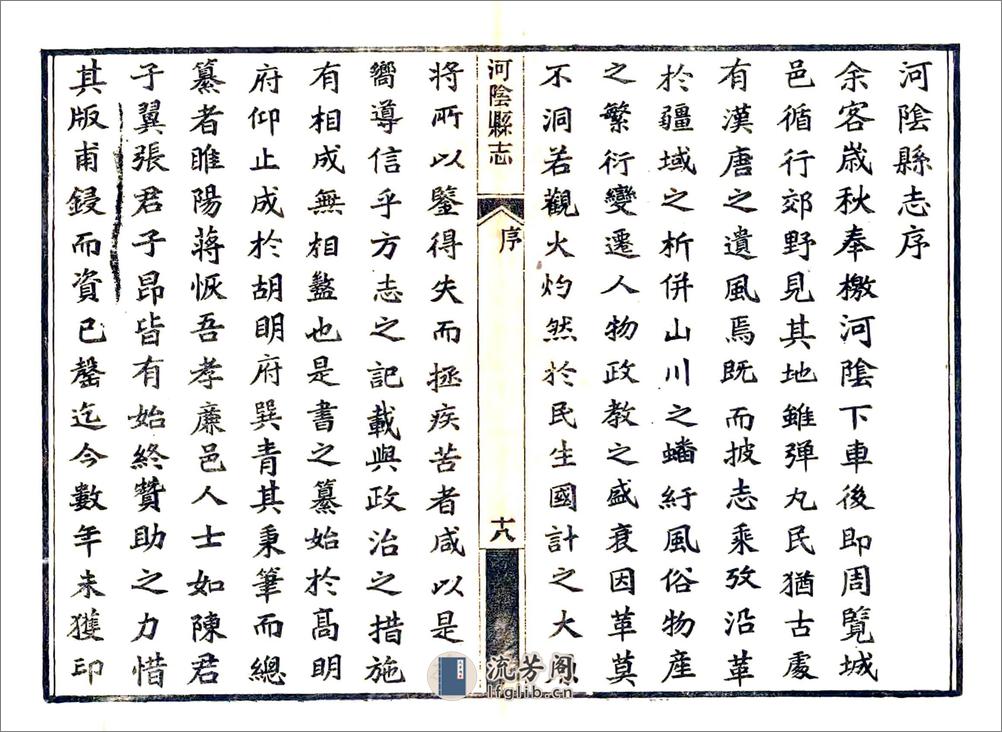 河陰縣志序
余客歲秋奉檄河陰下車後即周覽城
邑循行郊野見其地雖彈丸民猶古處
有漢唐之遺風焉既而披志乘攷沿革
於疆域之析併山川之蟠紆風俗物產
之繁衍變遷人物政教之盛衰因革莫
不洞若觀火灼然於民生國計之大
河陰縣志
序
十八
將所以鑒得失而拯疾苦者咸以是
嚮導信乎方志之記載與政治之措施
有相成無相盭也是書之纂始於高明
府仰止成於胡明府巽青其秉筆而總
纂者睢陽蔣恢吾孝廉邑人士如陳君
子翼張君子昂皆有始終贊助之力惜
其版甫鋟而資已罄迄今數年未獲印
流芳阁
lfglib.cn